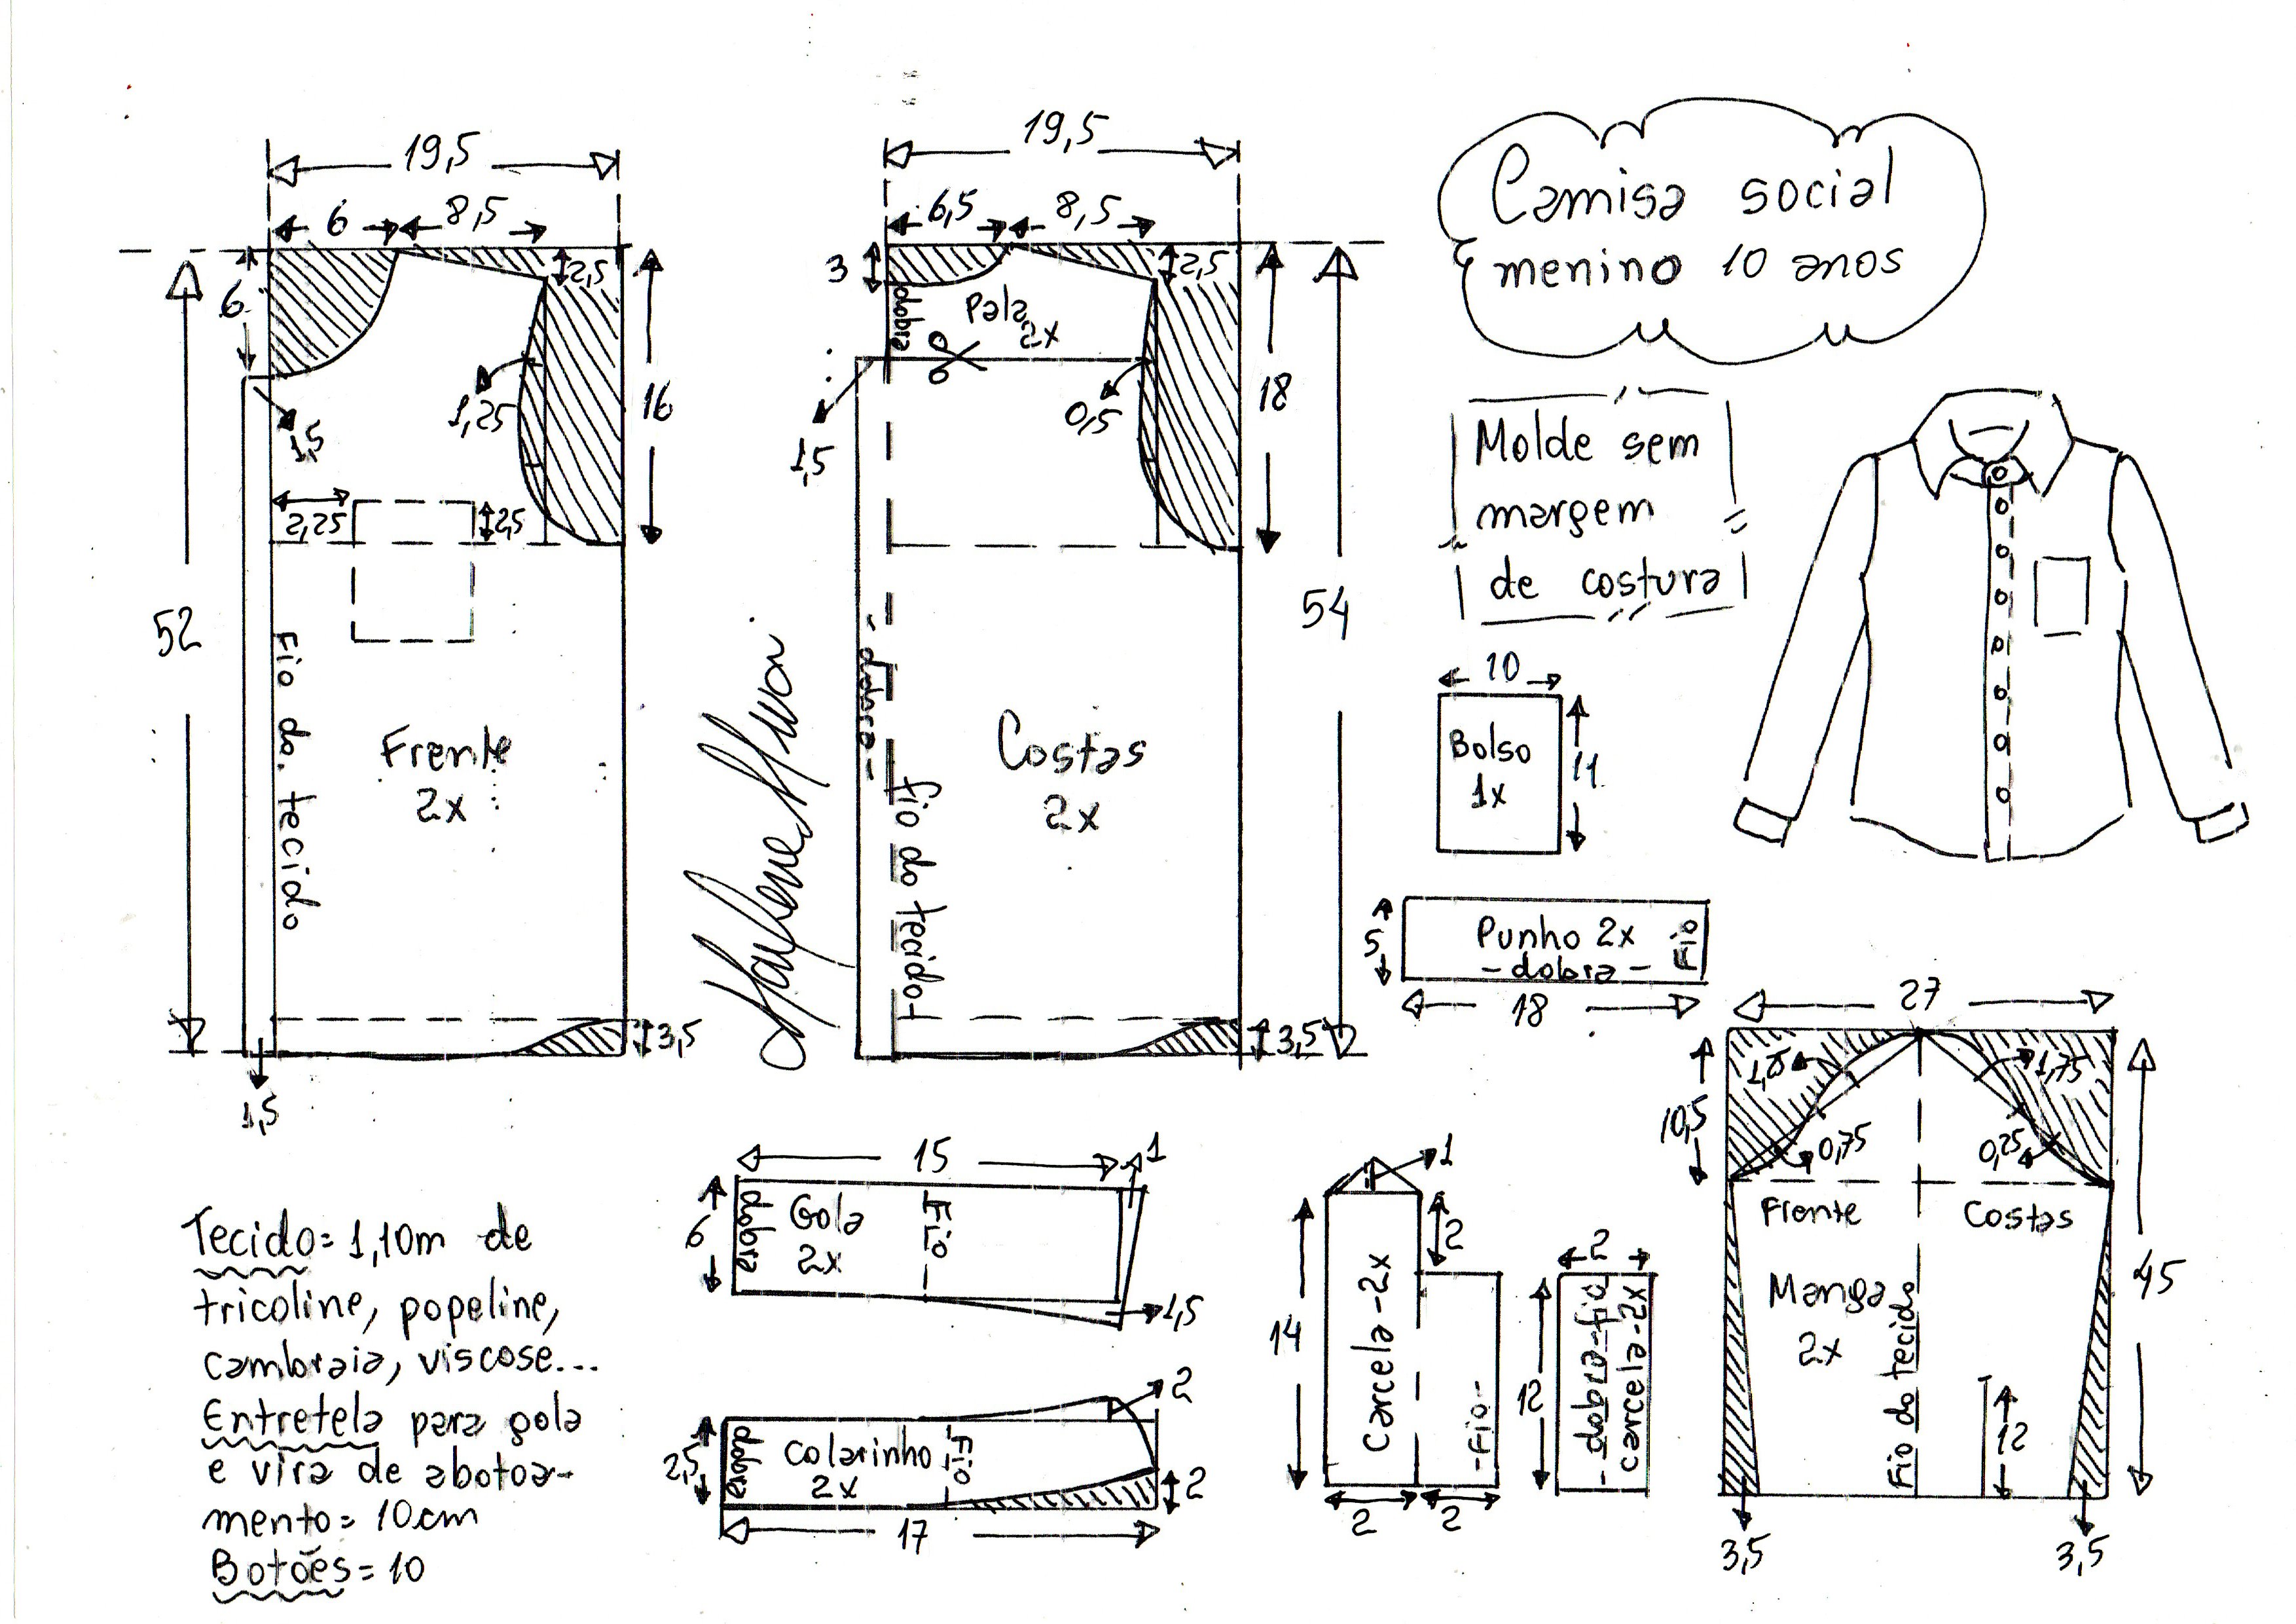 Camisa social
menino 10 anos
Molde sem
margem
de costura
19,5
6
8,5
2,5
6
1,5
1,25
16
2,25
2,5
52
Fio do tecido
Frente
2x
3,5
1,5
19,5
6,5
8,5
3
2,5
dobra
Pala
2x
1,5
0,5
18
54
- dobra -
Fio do tecido -
Costas
2x
3,5
10
Bolso
1x
11
5
Punho 2x
- dobra -
Fio
18
27
1,25
1,75
10,5
0,75
0,25
Frente
Costas
Manga
2x
Fio do tecido
45
12
3,5
3,5
15
1
6
dobra
Gola
2x
Fio
1,5
2
2,5
dobra
Colarinho
2x
Fio
2
17
1
2
14
Carcela - 2x
- Fio -
2
2
2
12
- dobra - fio
carcela - 2x
Tecido = 1,10m de
tricoline, popeline,
cambraia, viscose...
Entretela para gola
e vira de abotoa-
mento = 10cm
Botões = 10